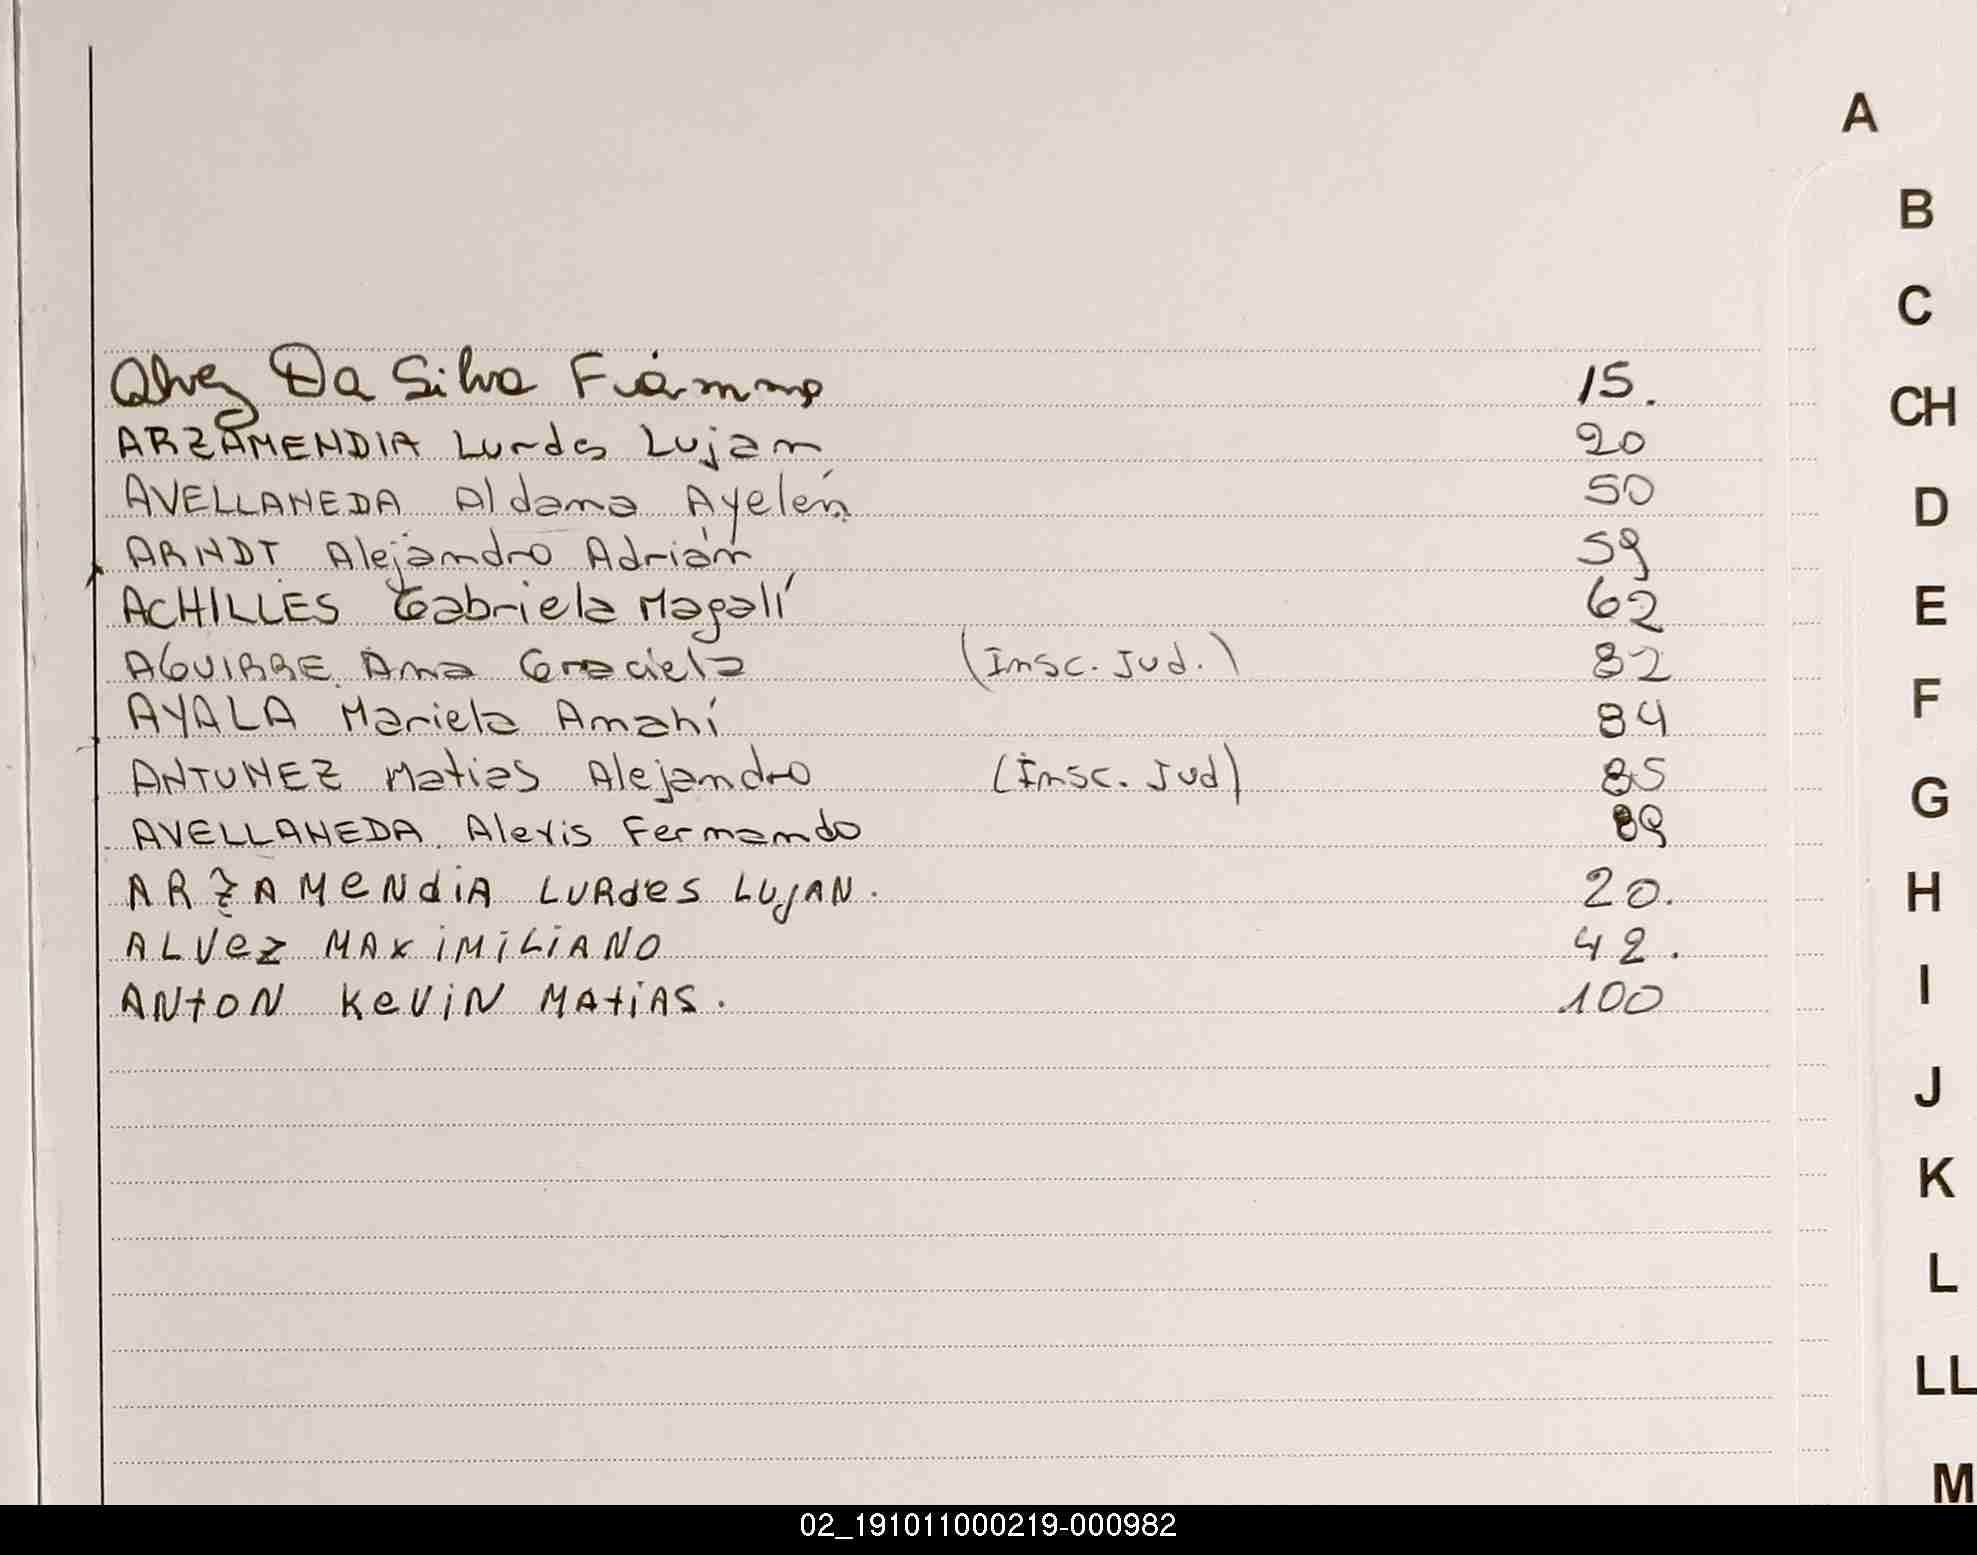 A
B
C
CH
D
E
F
G
H
I
J
K
L
LL
M
Alvez Da Silva Fiamma 15.
ARZAMENDIA Lurdes Lujan 20
AVELLANEDA Aldana Ayelén 50
ARNDT Alejandro Adrián 59
ACHILLES Gabriela Magalí 62
AGUIRRE Ana Graciela (Insc. Jud.) 82
AYALA Mariela Amahí 84
ANTUNEZ Matias Alejandro (Insc. Jud) 85
AVELLANEDA Alexis Fernando 89
ARZAMENdiA LURdes LUJAN. 20.
ALVez MAXiMiLiANO 42.
ANtON KeViN MAtiAS. 100
02_191011000219-000982